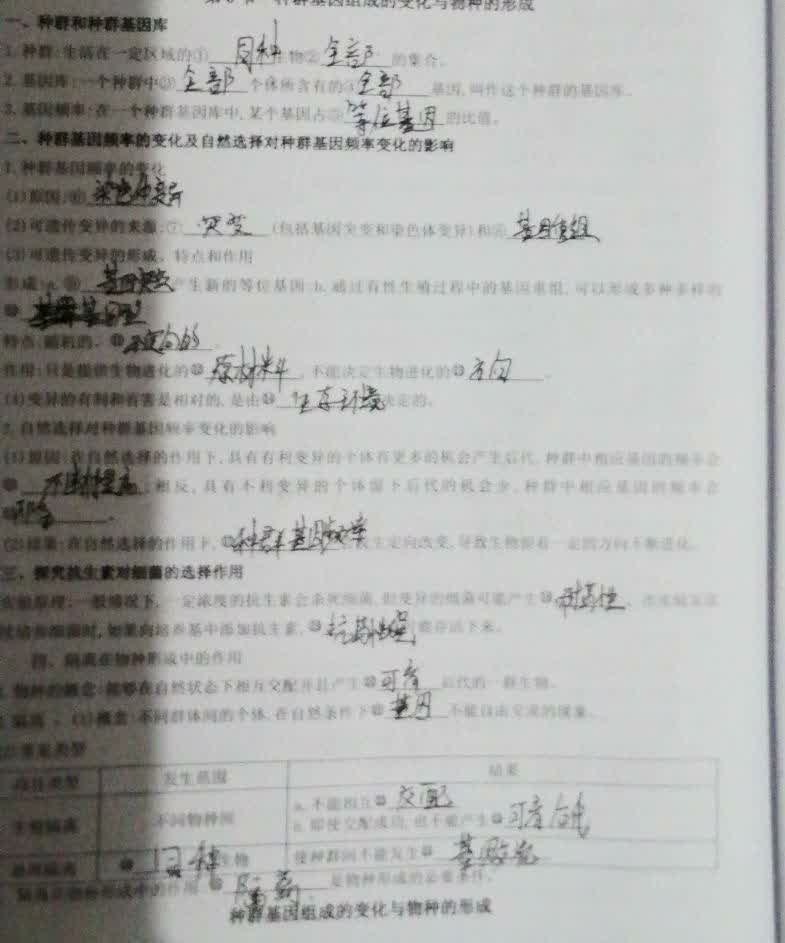 种群基因组成的变化与物种的形成
一、种群和种群基因库
1. 种群:生活在一定区域的① 同种 生物② 全部 的集合。
2. 基因库:一个种群中③ 全部 个体所含有的④ 全部 基因,叫作这个种群的基因库。
3. 基因频率:在一个种群基因库中,某个基因占⑤ 等位基因 的比值。
二、种群基因频率的变化及自然选择对种群基因频率变化的影响
1. 种群基因频率的变化
(1)原因:⑥
(2)可遗传变异的来源:⑦ 突变 (包括基因突变和染色体变异)和⑧ 基因重组
(3)可遗传变异的形成、特点和作用
形成:a.⑨ 基因突变 产生新的等位基因;b.通过有性生殖过程中的基因重组,可以形成多种多样的
⑩ 基因型
特点:随机的、⑪ 不定向的
作用:只是提供生物进化的⑫ 原材料 ,不能决定生物进化的⑬ 方向 。
(4)变异的有利和有害是相对的,是由⑭ 生存环境 决定的。
2. 自然选择对种群基因频率变化的影响
(1)原因:在自然选择的作用下,具有有利变异的个体有更多的机会产生后代,种群中相应基因的频率会
⑮ 不断提高 ;相反,具有不利变异的个体留下后代的机会少,种群中相应基因的频率会
(2)结果:在自然选择的作用下,⑰ 种群基因频率 会发生定向改变,导致生物朝着一定的方向不断进化。
三、探究抗生素对细菌的选择作用
实验原理:一般情况下,一定浓度的抗生素会杀死细菌,但变异的细菌可能产生⑱ 耐药性 。在实验室连
续培养细菌时,如果向培养基中添加抗生素,⑲ 可能存活下来。
四、隔离在物种形成中的作用
1. 物种的概念:能够在自然状态下相互交配并且产生⑳ 可育 后代的一群生物。
2. 隔离 (1)概念:不同群体间的个体,在自然条件下 基因 不能自由交流的现象。
(2)常见类型
隔离类型 发生范围 结果
生殖隔离 不同物种间 a. 不能相互 交配
b. 即使交配成功,也不能产生 可育后代
地理隔离 同种 生物 使种群间不能发生 基因交流
隔离在物种形成中的作用 隔离 是物种形成的必要条件。
种群基因组成的变化与物种的形成